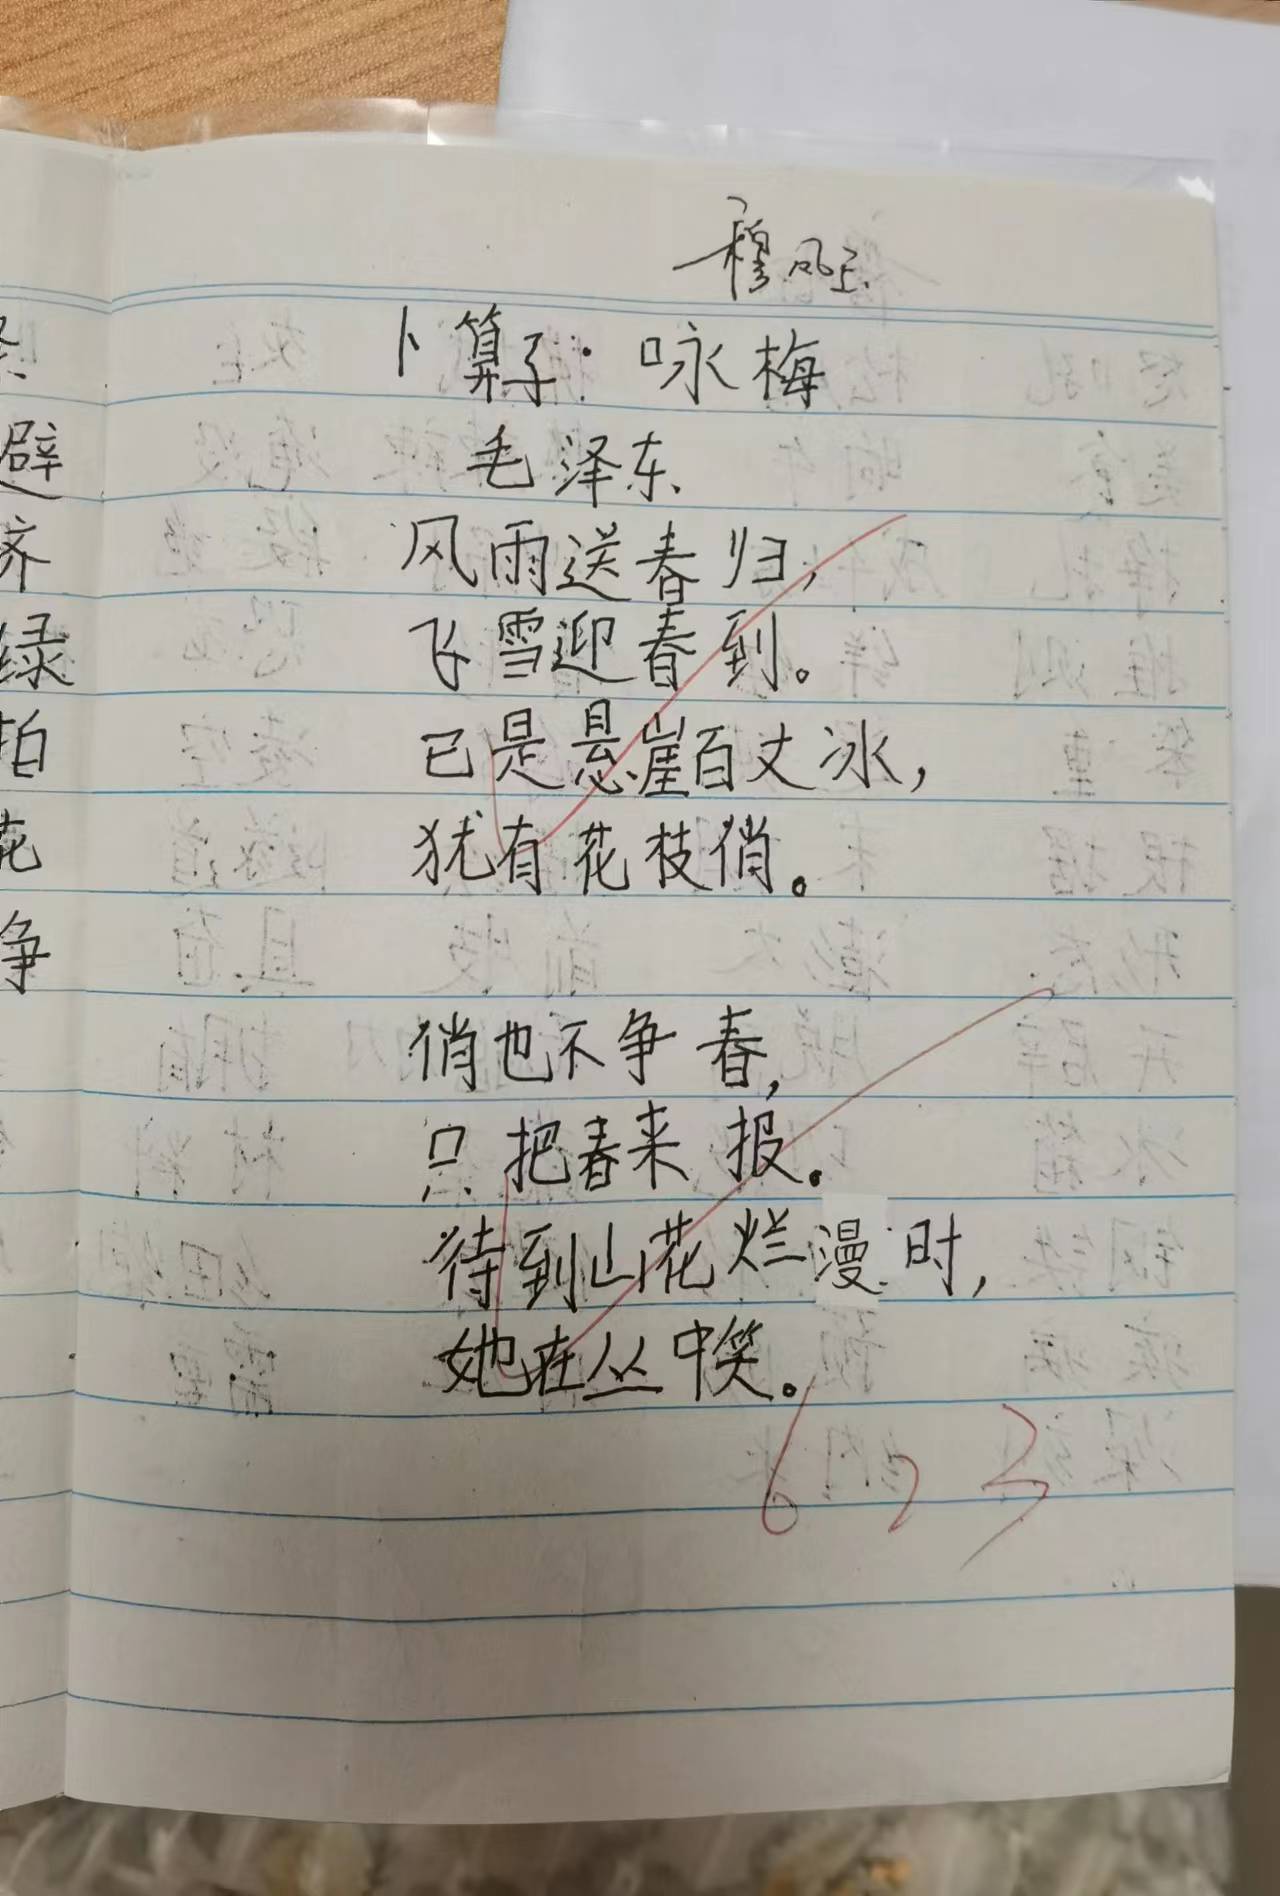 卜算子·咏梅
毛泽东
风雨送春归，
飞雪迎春到。
已是悬崖百丈冰，
犹有花枝俏。
俏也不争春，
只把春来报。
待到山花烂漫时，
她在丛中笑。
6，3
避
济
绿
拍
花
争